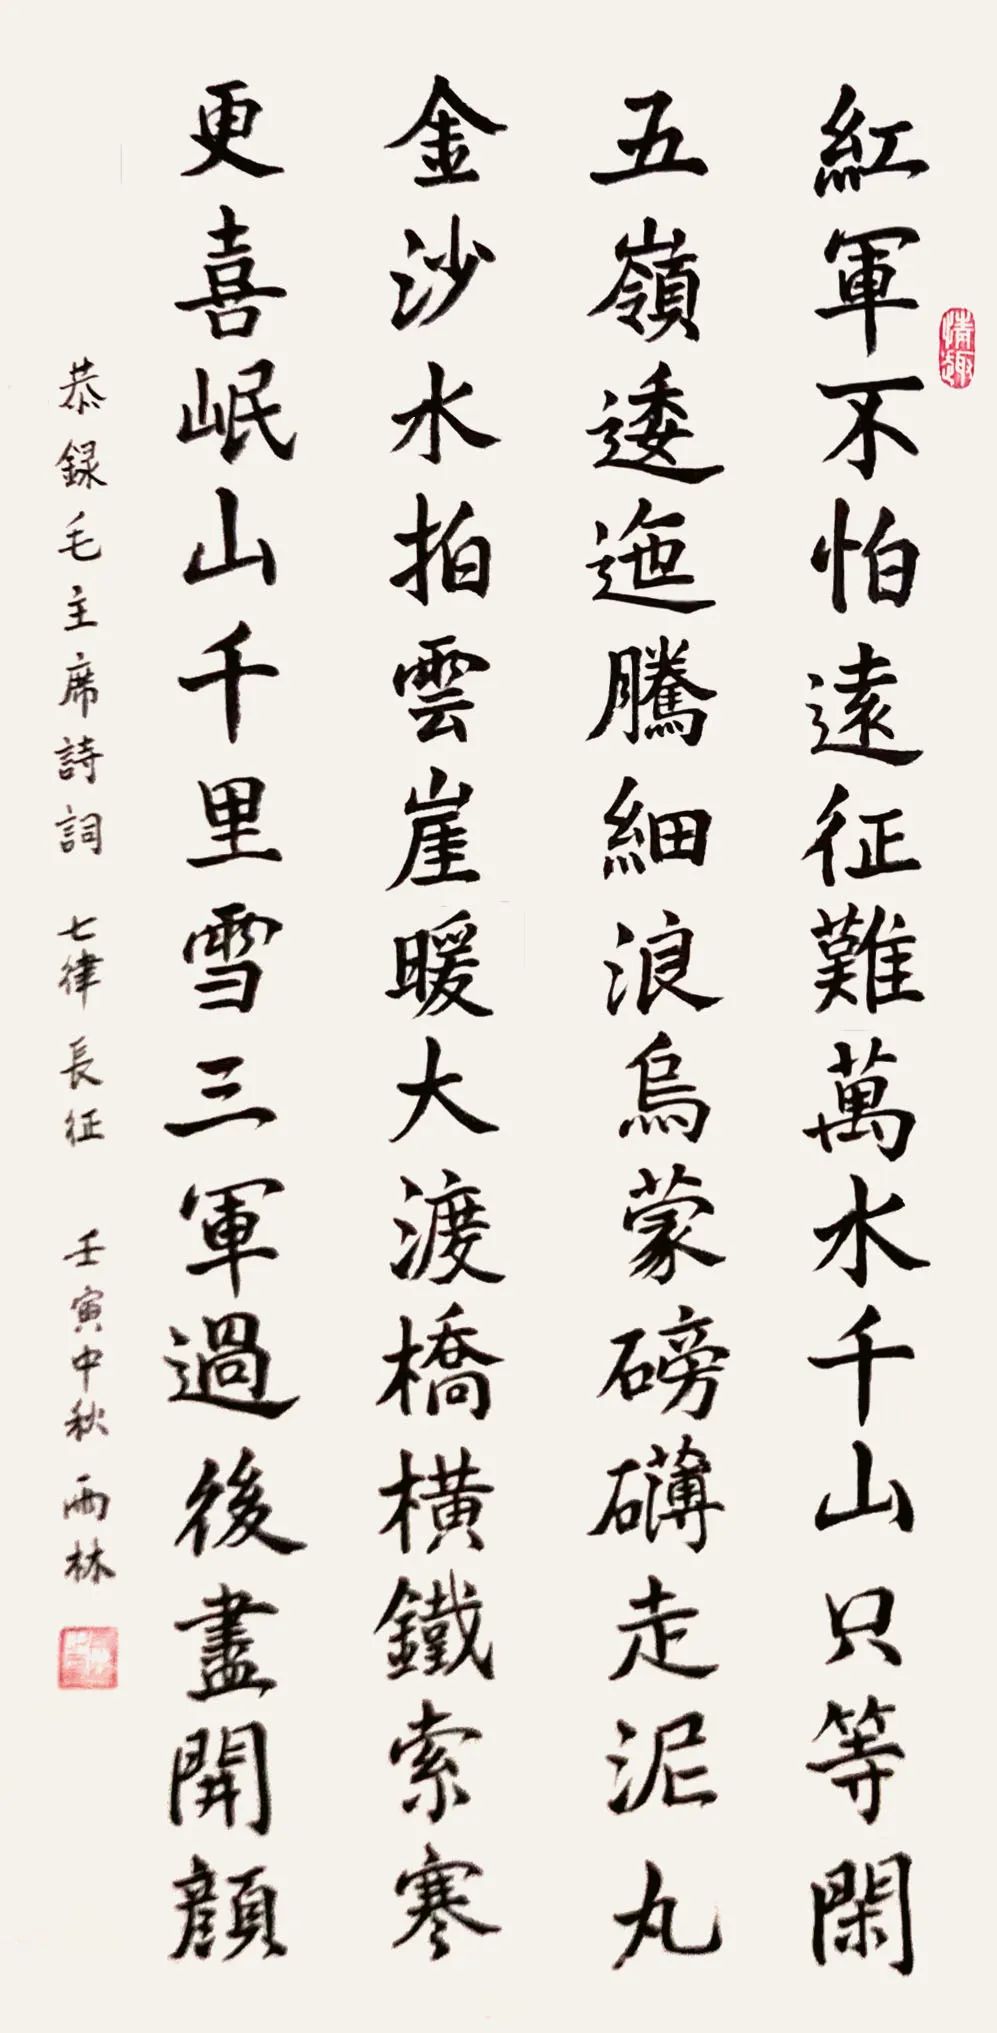 紅軍不怕遠征難萬水千山只等閑
五嶺逶迤騰細浪烏蒙磅礴走泥丸
金沙水拍雲崖暖大渡橋橫鐵索寒
更喜岷山千里雪三軍過後盡開顏
恭録毛主席詩詞 七律 長征 壬寅中秋 雨林
情趣